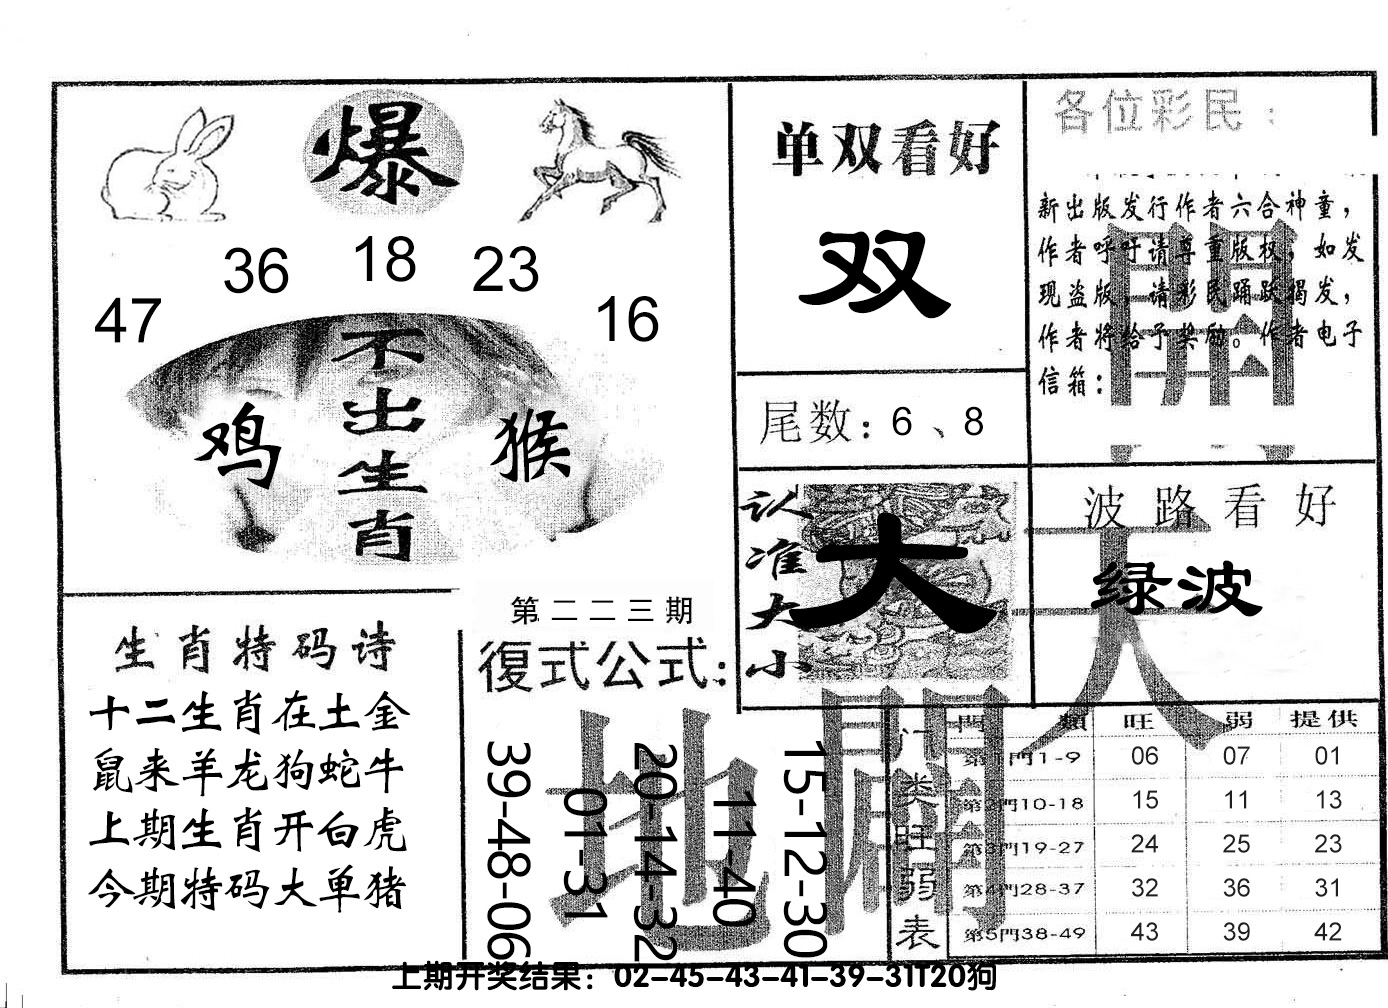 爆
36 18 23
47 16
不出生肖
鸡 猴
单双看好
双
尾数：6、8
各位彩民：
新出版发行作者六合神童，
作者呼吁请尊重版权，如发
现盗版，请彩民踊跃揭发，
作者将给予奖励。作者电子
信箱：
認准大小
大
波路看好
绿波
天
地
生肖特码诗
十二生肖在土金
鼠来羊龙狗蛇牛
上期生肖开白虎
今期特码大单猪
第二二三期
復式公式：
39-48-06
01-31
20-14-32
11-40
15-12-30
门类旺弱表
門類 旺 弱 提供
第1門1-9 06 07 01
第2門10-18 15 11 13
第3門19-27 24 25 23
第4門28-37 32 36 31
第5門38-49 43 39 42
上期开奖结果：02-45-43-41-39-31T20狗